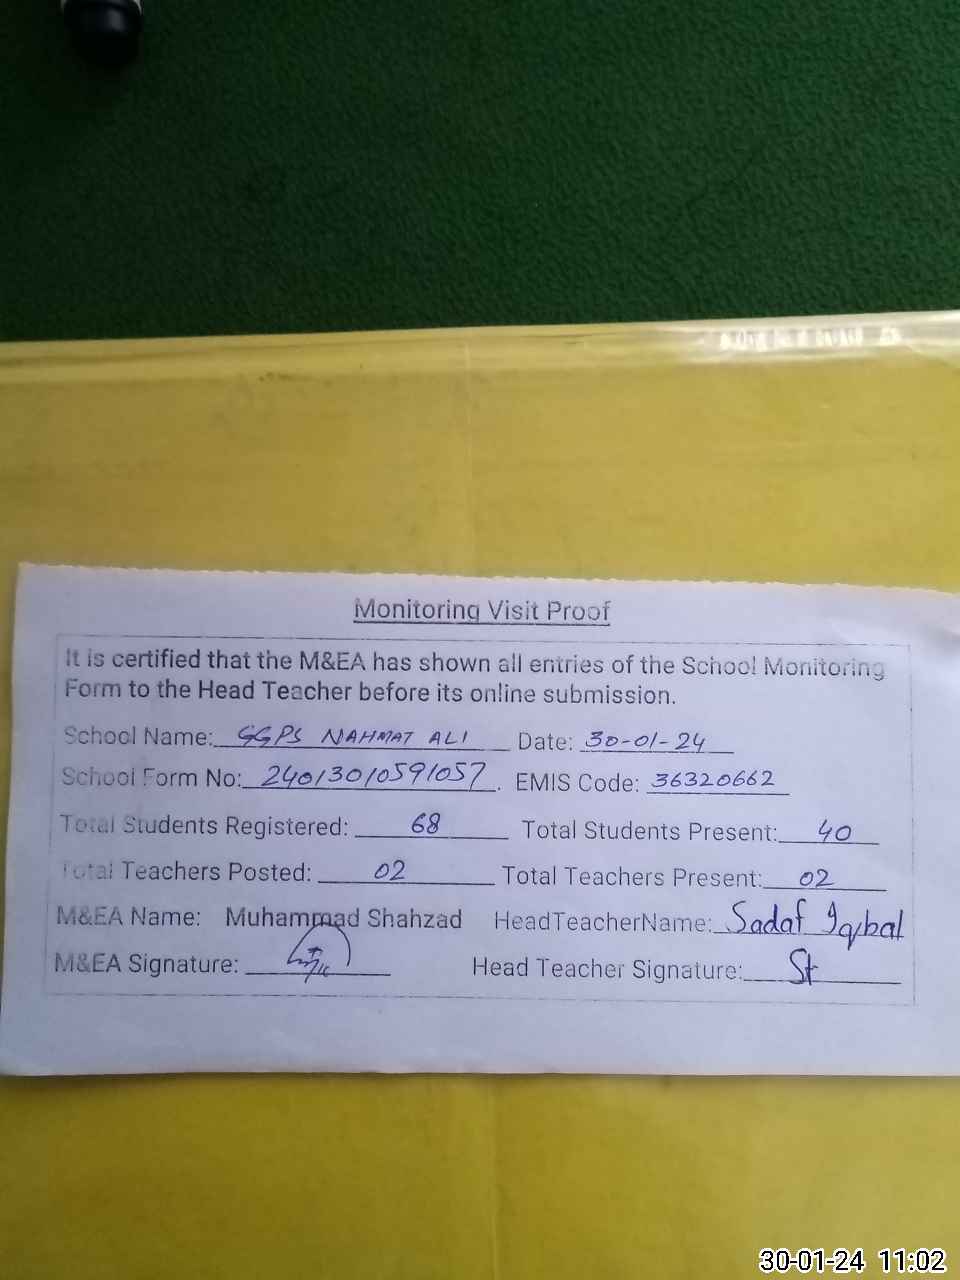 Monitoring Visit Proof
It is certified that the M&EA has shown all entries of the School Monitoring
Form to the Head Teacher before its online submission.
School Name: GGPS NAHMAT ALI Date: 30-01-24
School Form No: 24013010591057. EMIS Code: 36320662
Total Students Registered: 68 Total Students Present: 40
Total Teachers Posted: 02 Total Teachers Present: 02
M&EA Name: Muhammad Shahzad HeadTeacherName: Sadaf Iqbal
M&EA Signature: Head Teacher Signature:
30-01-24 11:02